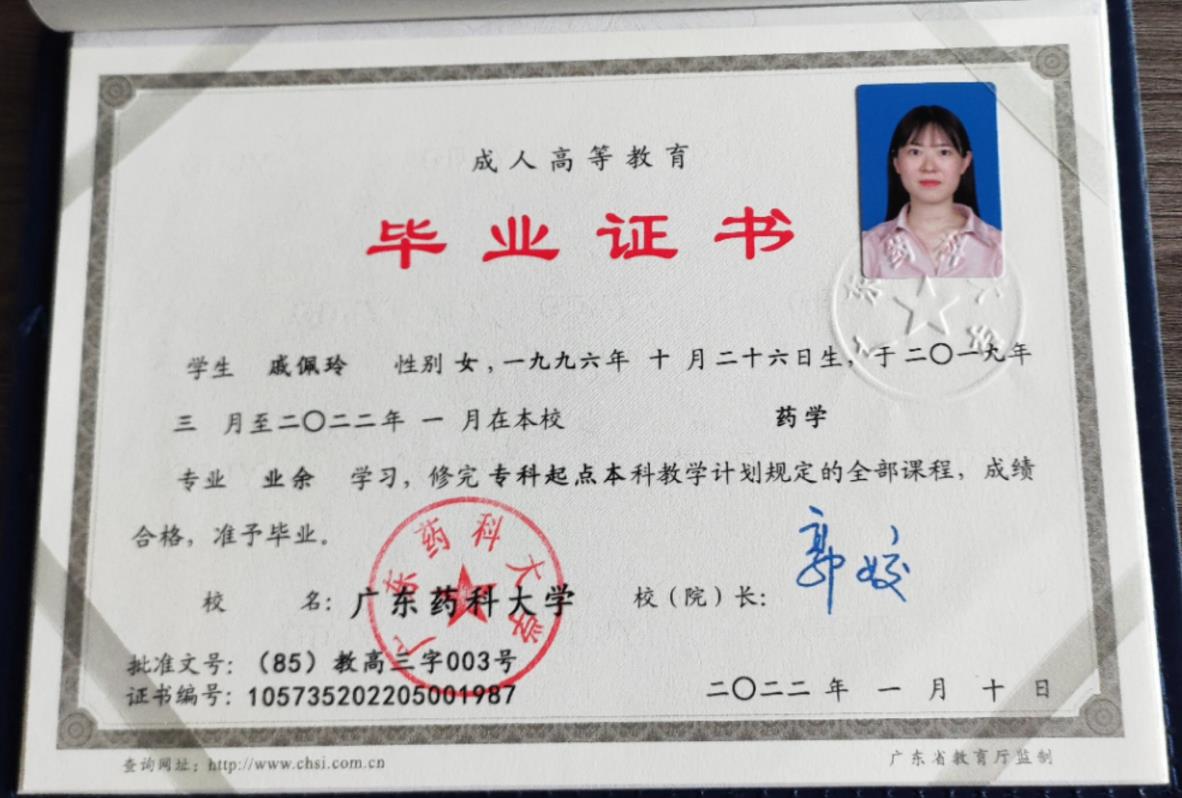 成人高等教育
毕业证书
学生 戚佩玲 性别 女，一九九六年 十 月二十六日生，于二〇一九年
三 月至二〇二二年 一 月在本校 药学
专业 业余 学习，修完 专科起点本科教学计划规定的全部课程，成绩
合格，准予毕业。
广东药科大学
校 名：广东药科大学 校（院）长：郭姣
批准文号：（85）教高三字003号
证书编号：105735202205001987 二〇二二 年 一 月 十 日
查询网址：http://www.chsi.com.cn 广东省教育厅监制